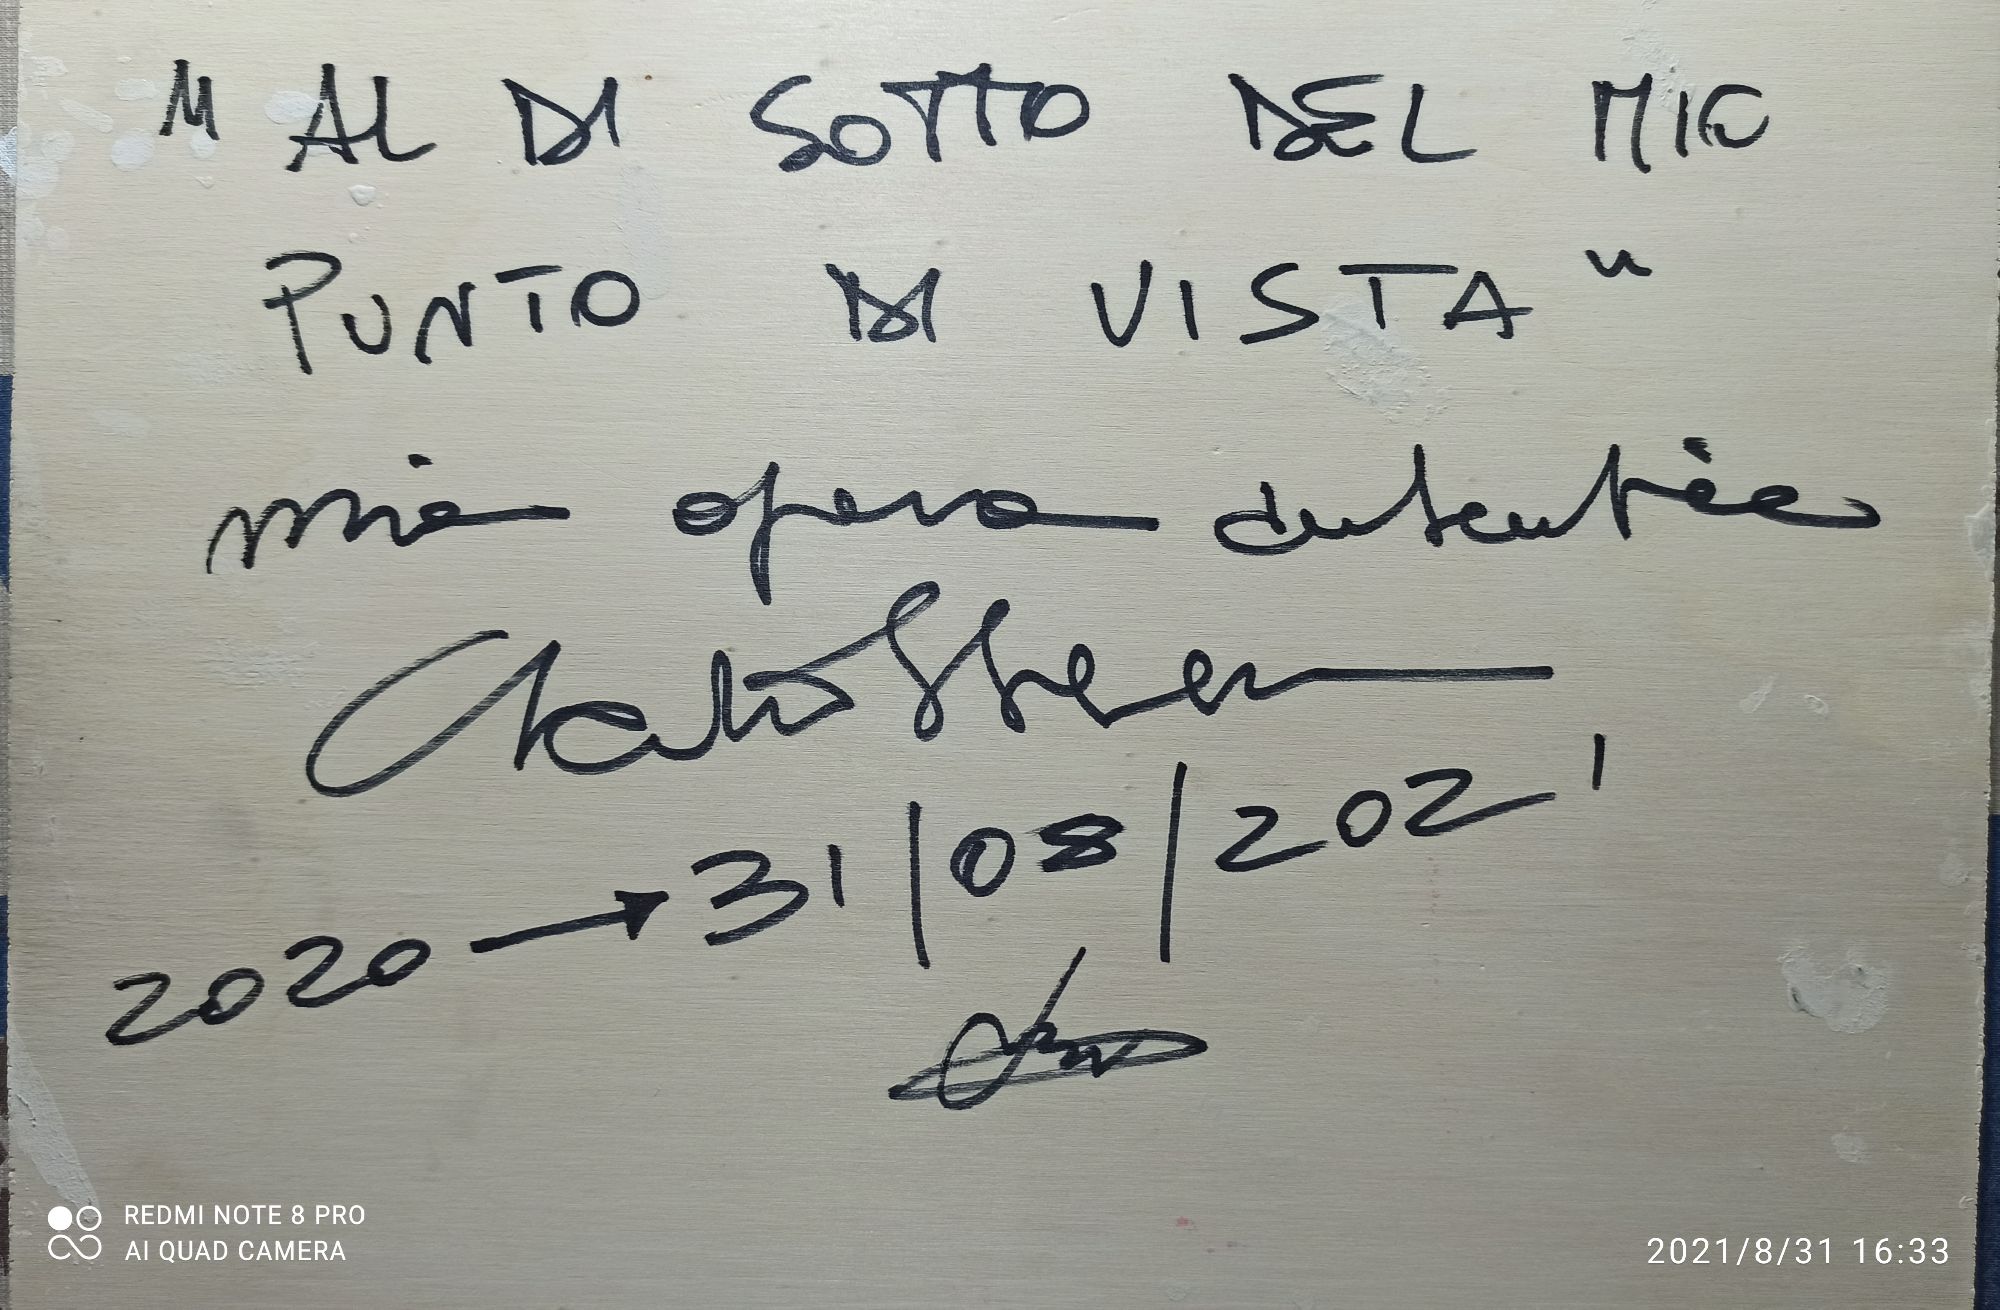 " AL DI SOTTO DEL MIO
PUNTO DI VISTA "
mia opera autentica
2020 → 31/08/2021
REDMI NOTE 8 PRO
AI QUAD CAMERA
2021/8/31 16:33